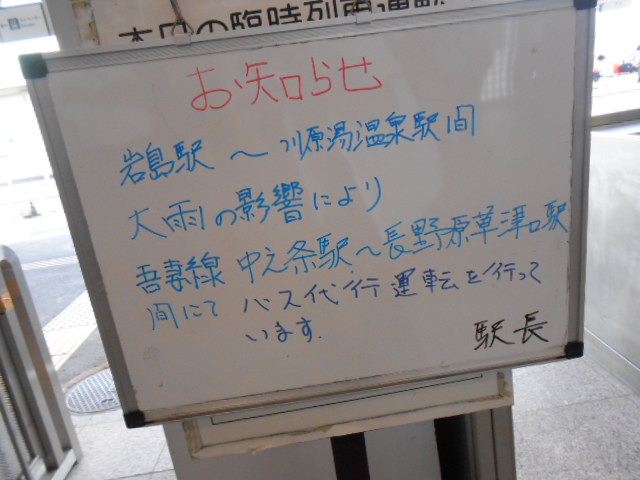 本日の臨時列車運転
お知らせ
岩島駅〜川原湯温泉駅間
大雨の影響により
吾妻線 中之条駅〜長野原草津口駅
間にて バス代行運転を行って
います.
駅長